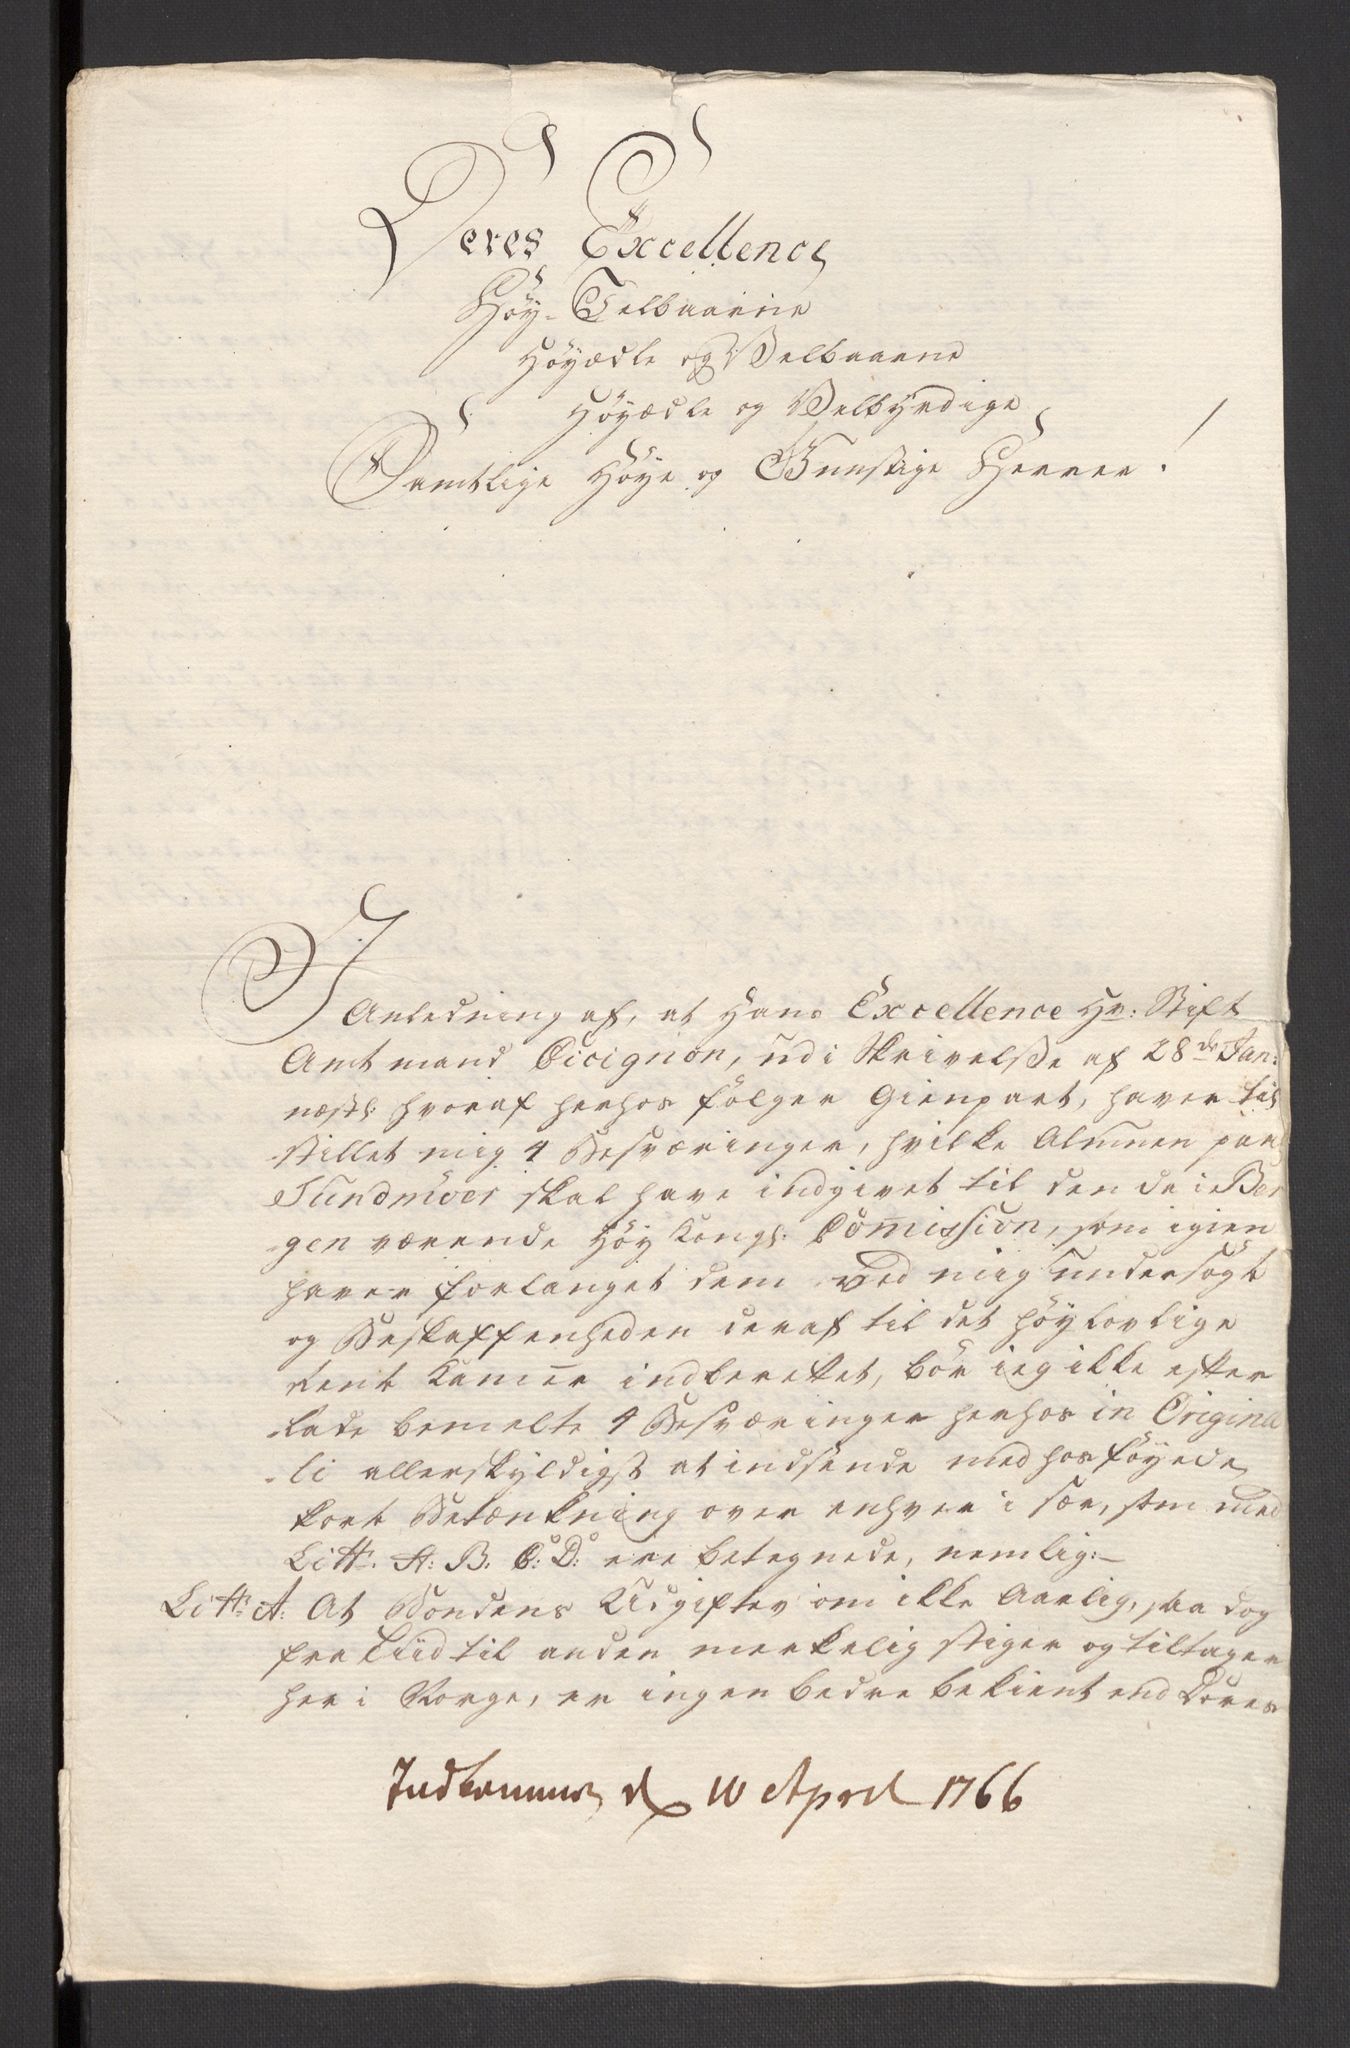 Deres Excellence
Høy-Velbaarne
Høyædle og Velbaarne
Høyædle og Velbyrdige
Samtlige Høye og Gunstige Herrer!
I
Anledning af, at Hans Excellence Hr: Stift
Amtmand Cicignon, udi Skrivelse af 28de Jan:
næstl: hvoraf herhos følger Gienpart, haver til
stillet mig 4 Besværinger, hvilke Almuen paa
Sundmöer skal have indgivet til den da i Ber
gen værende Høy Kongl: Commission, som igien
haver forlanget dem ved mig undersøgt
og Beskaffenheden deraf til det høylovlige
Rente Kammer indberettet, bør ieg ikke efter
lade bemelte 4 Besværinger herhos in Origina
li allerskyldigst at indsende med hosføyede
kort Betænkning over enhver i sær, som med
Litt: A: B: C: D: ere betegnede, nemlig:-
Litt: A: At Bondens Udgifter om ikke Aarlig, saa dog
fra Tiid til anden merkelig stiger og tiltager
her i Norge, er ingen bedre bekient end Deres
Indkommen d 10 April 1766